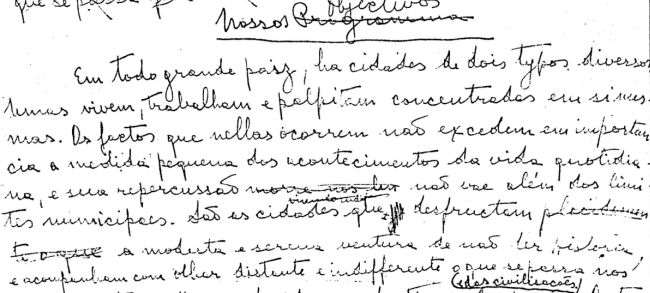 que se passa
objectivos
Nossos Programma
Em todo grande paiz, ha cidades de dois typos diversos
Humas vivem, trabalham e palpitam concentradas em si mes-
mas. Os factos que nellas ocorrem não excedem em importan
cia a medida pequena dos acontecimentos da vida quotidia-
na, e sua repercussão morre nos não vae além dos limi-
tes municipaes. São as cidades que desfructam placidamen
E o que a modesta e serena ventura de não ter historia,
e acompanham com olhar distante e indifferente o que se passa nos
das civilisações